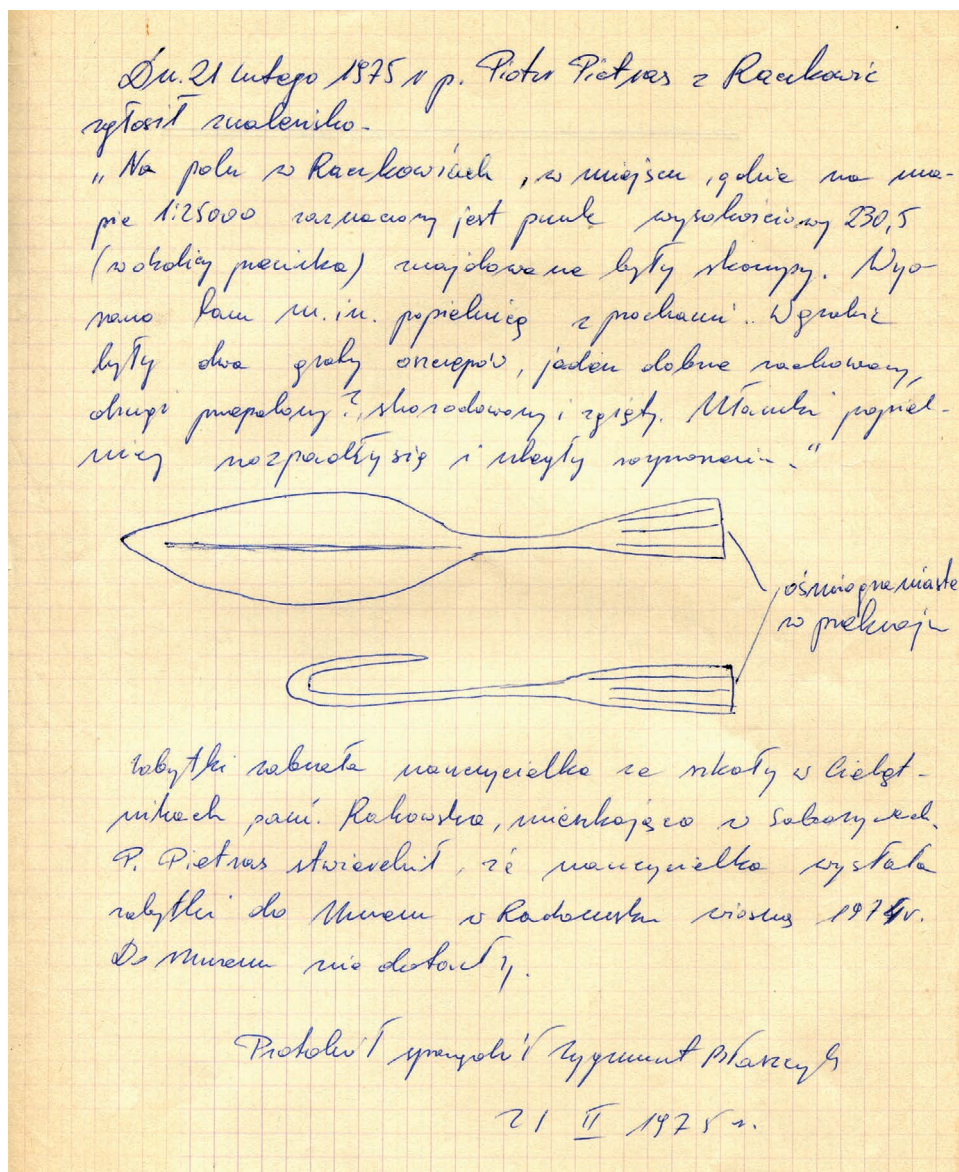 Dn. 21 lutego 1975 r p. Piotr Pietras z Raczkowic
zgłosił znalezisko.
„Na polu w Raczkowicach, w miejscu, gdzie na ma-
pie 1:25000 zaznaczony jest punk wysokościowy 230,5
(w okolicy piecucha) znajdowane były skorupy. Wyo-
rano tam m.in. popielnicę z prochami. W grobie
były dwa groty oszczepów, jeden dobrze zachowany,
drugi przepalony?, skorodowany i zgięty. Ułamki popiel-
nicy rozpadły się i uległy rozproszeniu."
ośmiograniaste
w przekroju
Zabytki zabrała nauczycielka ze szkoły w Cieląt-
nikach pani. Rakowska, mieszkająca w Soborzycach.
P. Pietras stwierdził, że nauczycielka wysłała
zabytki do Muzeum w Radomsku wiosną 1974 r.
Do Muzeum nie dotarły.
Protokół sporządził Zygmunt Błaszczyk
21 II 1975 r.